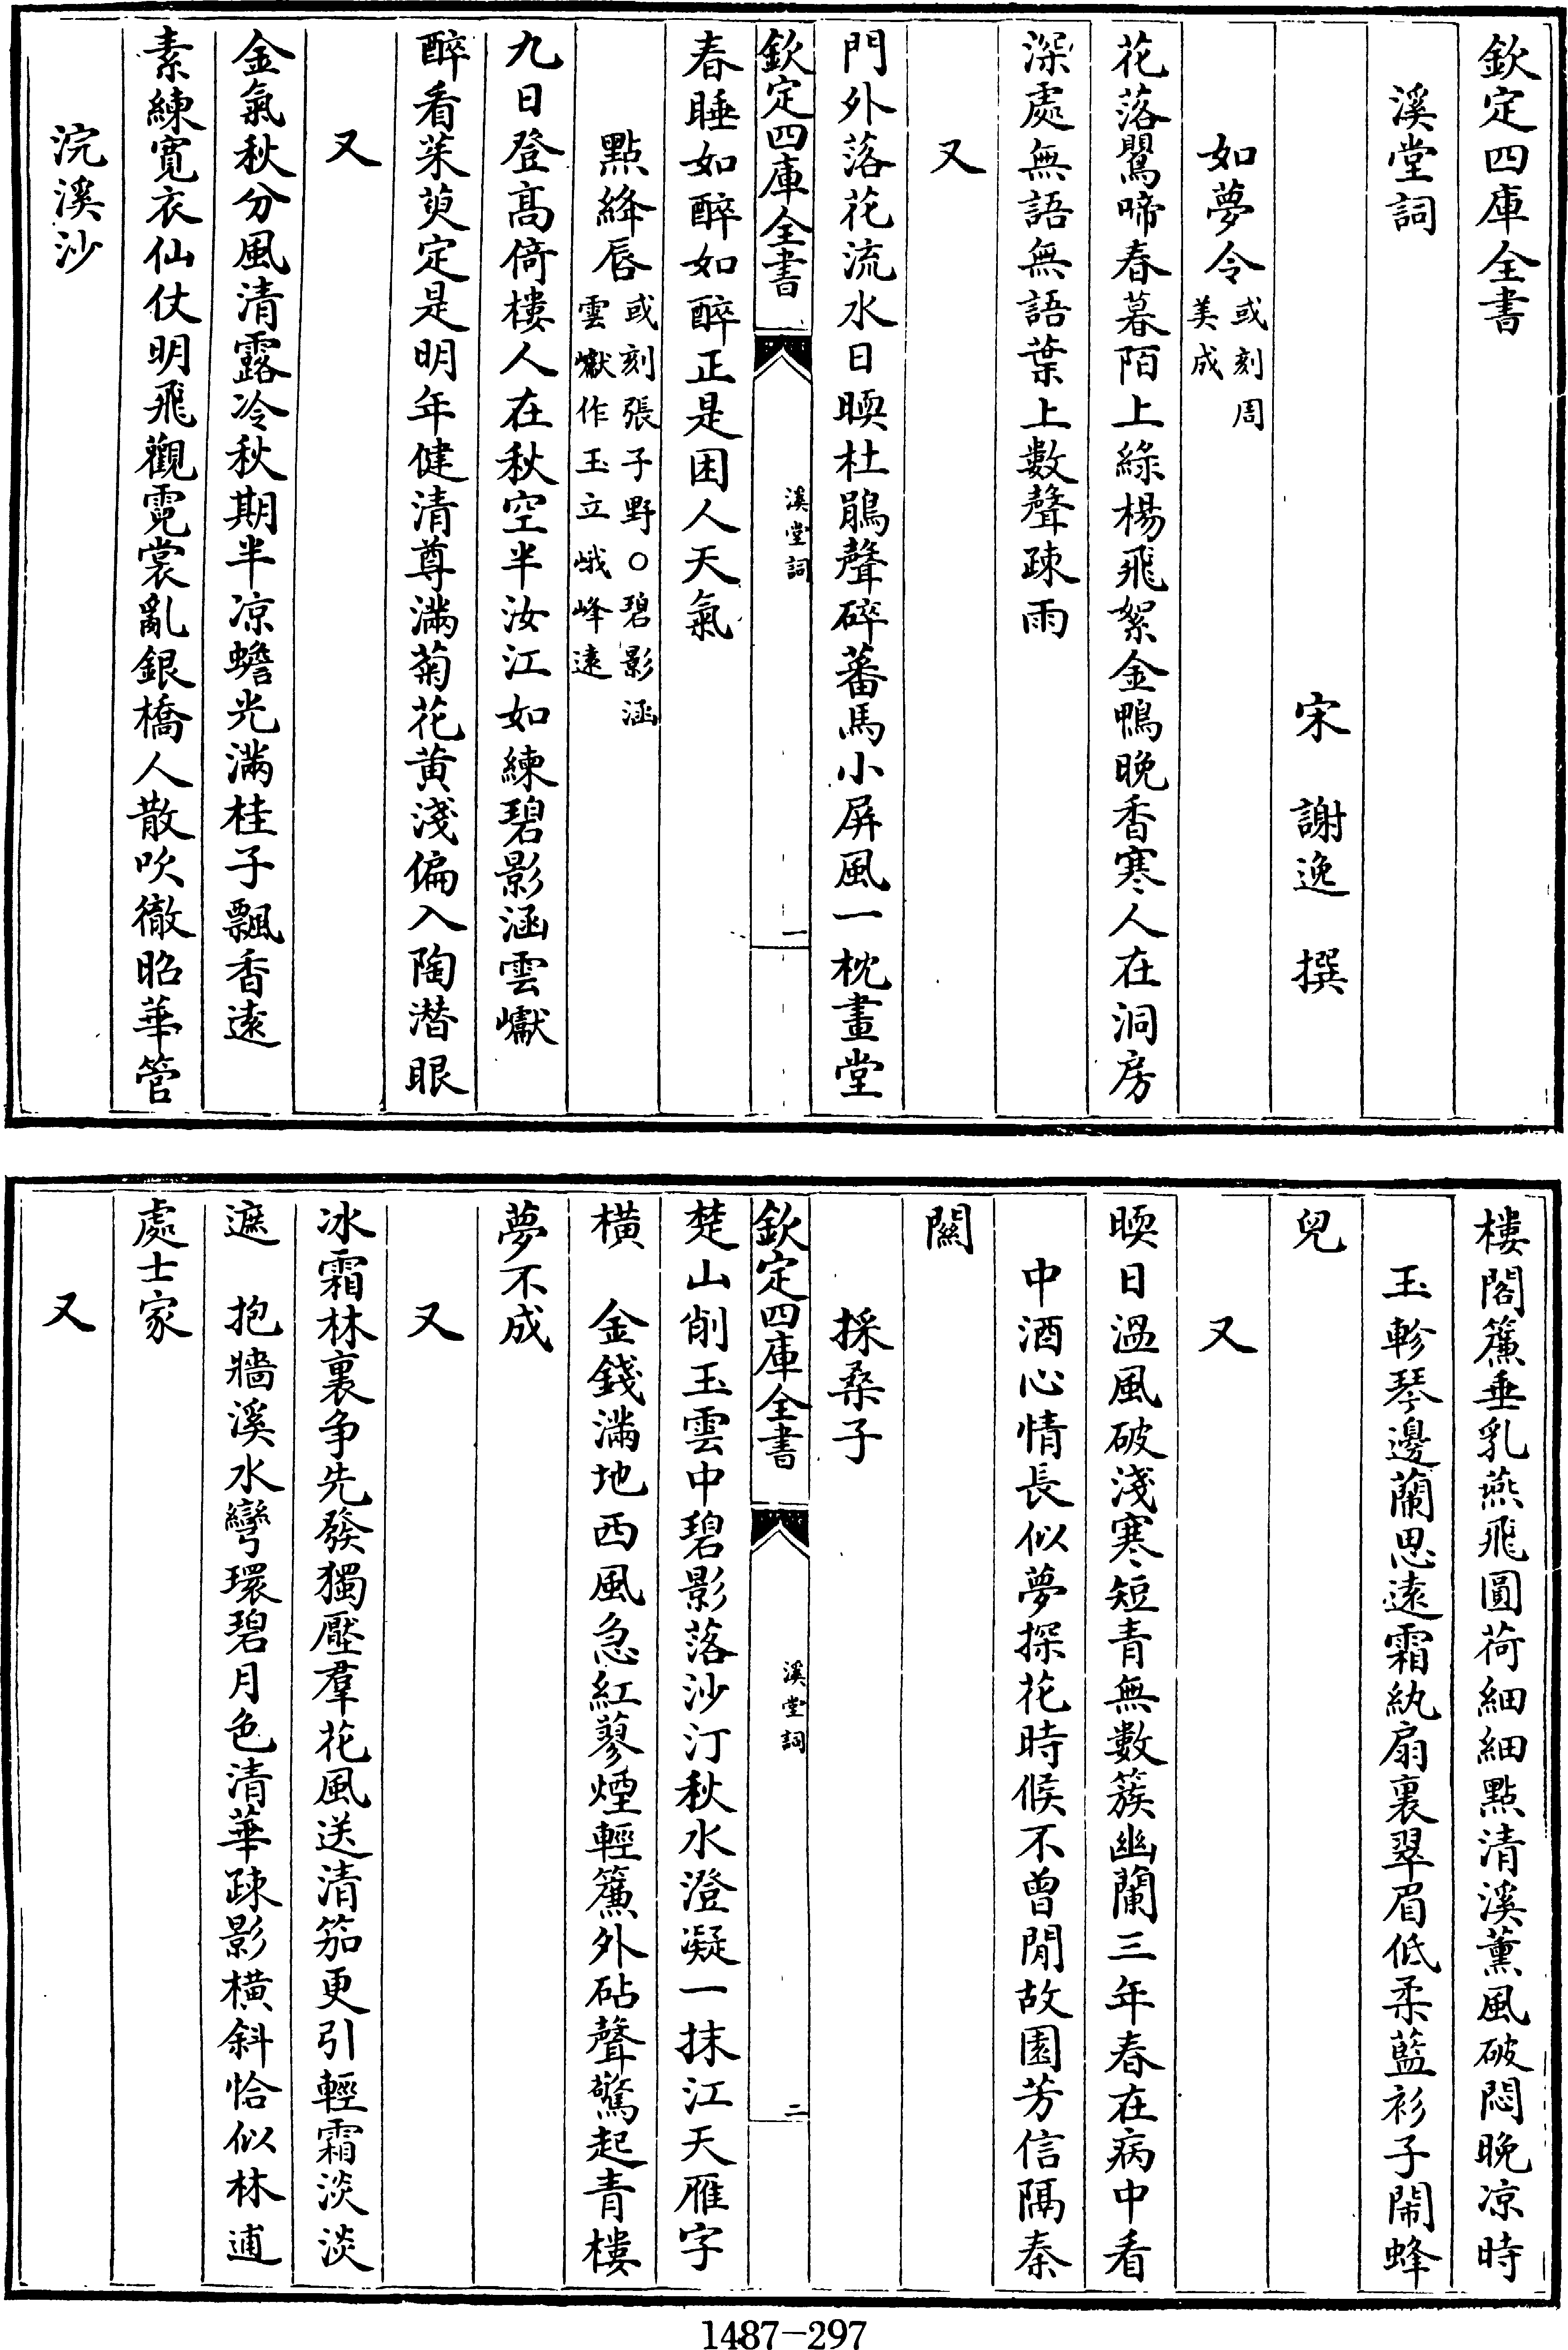 欽定四庫全書
溪堂詞
宋　謝逸　撰
如夢令或刻周
美成
花落鸎啼春暮陌上綠楊飛絮金鴨晚香寒人在洞房
深處無語無語葉上數聲疎雨
又
門外落花流水日暖杜鵑聲碎蕃馬小屏風一枕畫堂
欽定四庫全書
溪堂詞
一
春睡如醉如醉正是困人天氣
點絳唇或刻張子野○碧影涵
雲巘作玉立峨峰遠
九日登高倚樓人在秋空半汝江如練碧影涵雲巘
醉看茱萸定是明年健清尊滿菊花黄淺偏入陶潜眼
又
金氣秋分風清露冷秋期半凉蟾光滿桂子飄香遠
素練寬衣仙仗明飛觀霓裳亂銀橋人散吹徹昭華管
浣溪沙
樓閣簾垂乳燕飛圓荷細細點清溪薰風破悶晚凉時
玉軫琴邊蘭思遠霜紈扇裏翠眉低柔藍衫子鬧蜂
兒
又
暖日温風破淺寒短青無數簇幽蘭三年春在病中看
中酒心情長似夢探花時候不曾閒故園芳信隔秦
關
採桑子
欽定四庫全書
溪堂詞
二
楚山削玉雲中碧影落沙汀秋水澄凝一抹江天雁字
橫　金錢滿地西風急紅蓼煙輕簾外砧聲驚起青樓
夢不成
又
冰霜林裏争先發獨壓羣花風送清笳更引輕霜淡淡
遮　抱牆溪水彎環碧月色清華疎影橫斜恰似林逋
處士家
又
1487-297